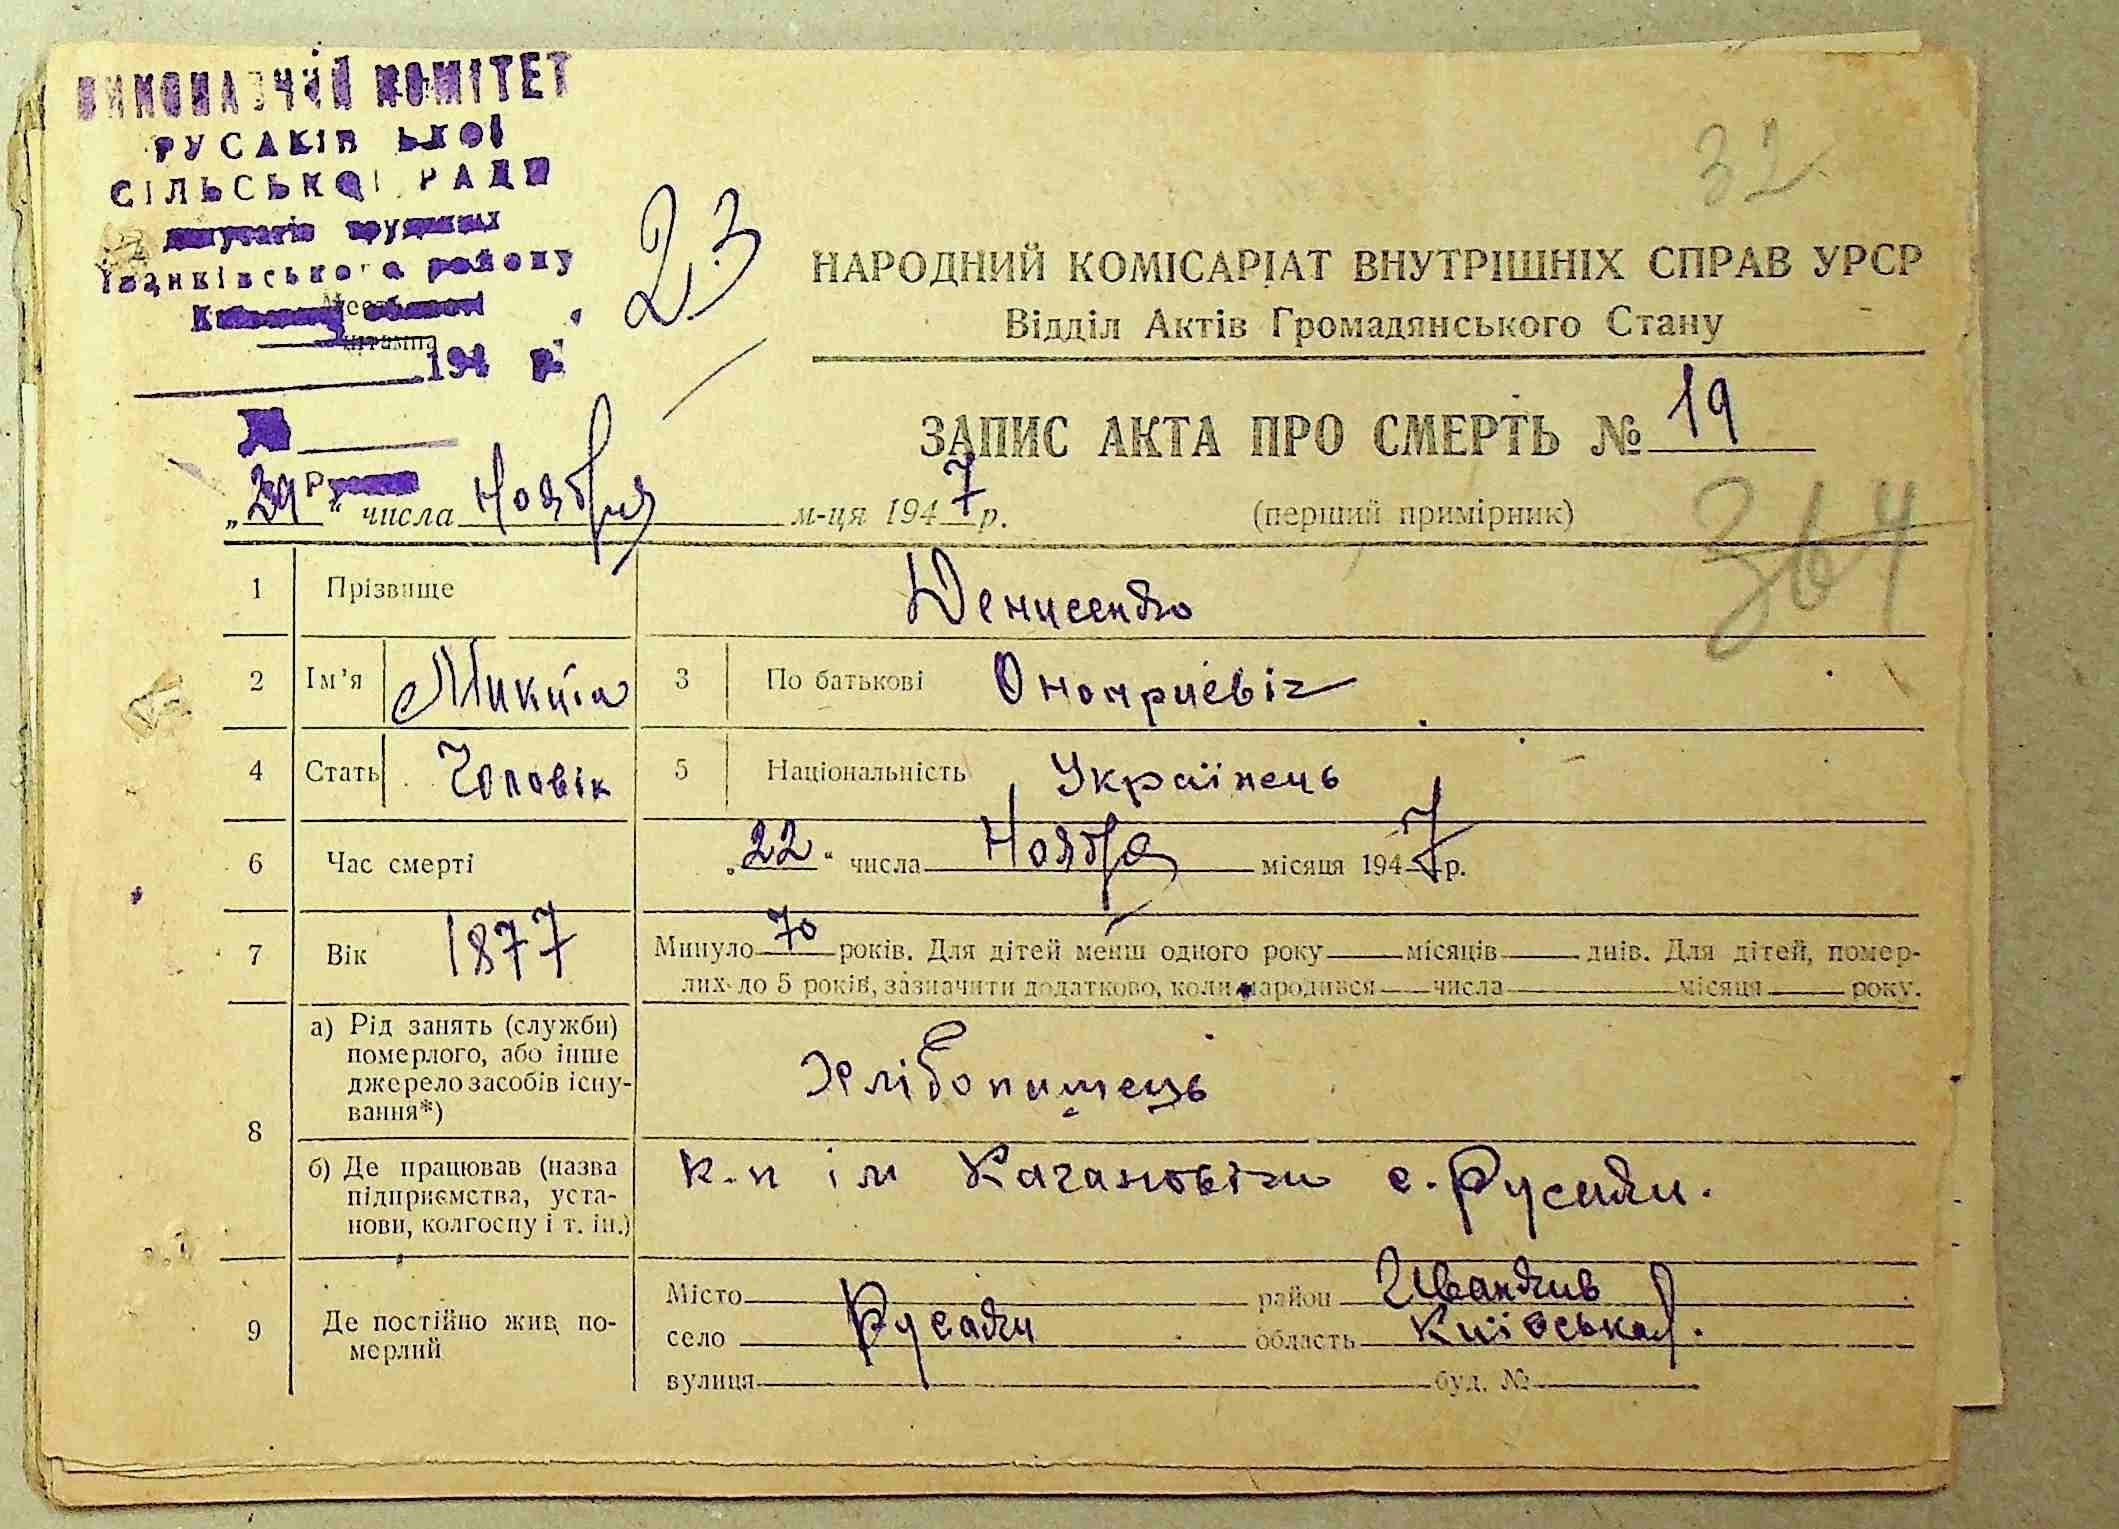 ВИКОНАВЧИЙ КОМІТЕТ
РУСАКІВ ЬКОЇ
СІЛЬСЬКОЇ РАДИ
депутатів трудящих
Іванківського району
Київської області
194 р.
23
32
НАРОДНИЙ КОМІСАРІАТ ВНУТРІШНІХ СПРАВ УРСР
Відділ Актів Громадянського Стану
ЗАПИС АКТА ПРО СМЕРТЬ № 19
„29“ числа Ноября м-ця 1947 р. (перший примірник)
364
1 Прізвище Денисенко
2 Ім'я Микита 3 По батькові Оноприєвіч
4 Стать Чоловік 5 Національність Українець
6 Час смерті „22“ числа Ноября місяця 1947 р.
7 Вік 1877 Минуло 70 років. Для дітей менш одного року місяців днів. Для дітей, помер-
лих до 5 років, зазначити додатково, коли народився числа місяця року.
8 а) Рід занять (служби)
померлого, або інше
джерело засобів існу-
вання*)
Хлібопашець
б) Де працював (назва
підприємства, уста-
нови, колгоспу і т. ін.)
к-п ім Кагановічи с. Русаки.
9 Де постійно жив по-
мерлий
Місто район Иванкив
село Русаки область Київська
вулиця буд. №